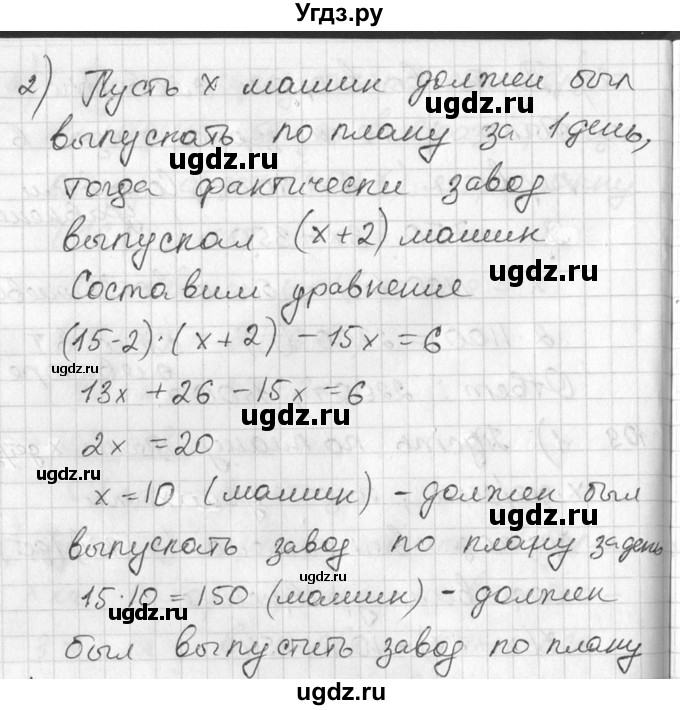 Угдз.ру
2) Пусть x машин должен был
ugdz.ru
выпускать по плану за 1 день,
ugdz.ru
тогда фактически завод
выпускал (x+2) машин
ugdz.ru
Составим уравнение
(15-2)·(x+2)-15x=6
ugdz.ru ugdz.ru
13x+26-15x=6
2x=20
ugdz.ru
x=10 (машин) - должен был
ugdz.ru
выпускать завод по плану за день
ugdz.ru
15·10=150 (машин) - должен
ugdz.ru
был выпустить завод по плану
ugdz.ru